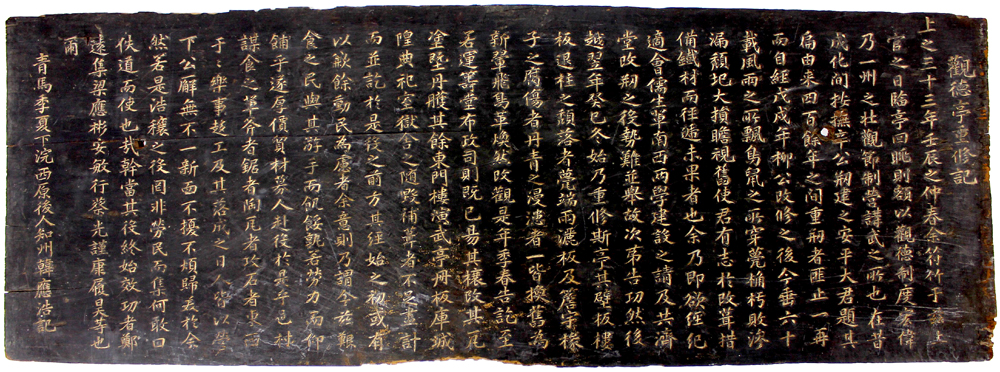 觀德亭重修記
上之三十三年壬辰之仲春余符竹于
官之日臨亭回眺則額以觀德制度宏偉
乃一州之壯觀節制營講武之所也在昔
成化間按撫辛公刱建之安平大君題其
扁由來四百餘年之間重刱者匪止一再
而自經戊戌年柳公改修之後今垂六十
載風雨之所飄鳥鼠之所穿甍桷朽敗滲
漏頹圮大損瞻視舊使君有志於改葺措
備鐵材而往遞未果者也余乃卽欲經紀
適會儒生輩南西兩學建設之請及共濟
堂改刱之後勢難並擧故次第告功然後
越翌年癸巳冬始乃重修斯亭其壁板樓
板退柱之頹落者甍端雨灑板及簷宇樑
子之腐傷者丹青之浸漶者一皆換舊爲
新翬飛鳥革煥然改觀是年季春告訖至
若運籌堂布政司則旣已易其欀改其瓦
塗塈丹雘其餘東門樓演武亭丹板庫城
隍典祀室獄舍之隨毁補葺者不必盡計
而並訖於是後之前方其經始之初或有
以歉餘動民爲慮者余意則乃謂今玆艱
食之民與其游手而飢餒孰若勞力而仰
餔乎遂厚價貿材募人赴役於是乎邑村
謀食之輩斧者鋸者陶瓦者攻石者東西
于于樂事趍工及其落成之日人皆以上
下公廨無不一新面不擾不煩歸美於余
然若是浩穰之後罔非勞民而集何敢曰
佚道而使也哉幹當其役終始效功者鄭
達集梁應彬安敏行柴光謹康履昊等也
爾
靑馬季夏下浣西原後人知州韓應浩記